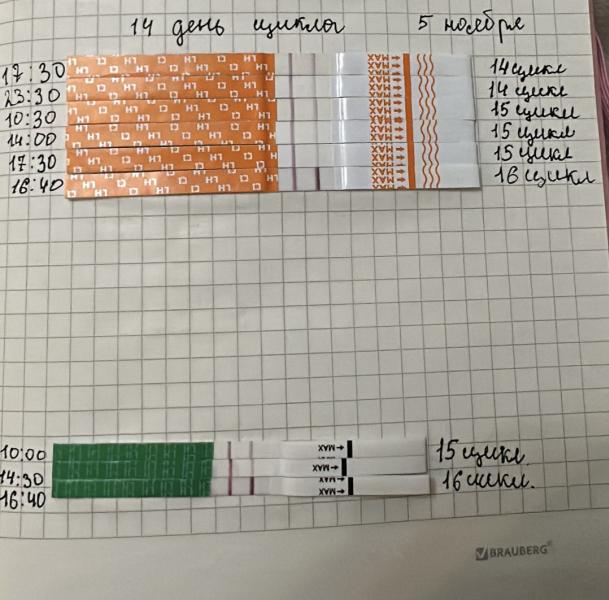 14 день цикла 5 ноября
17:30 14 цикл
23:30 14 цикл
10:30 15 цикл
14:00 15 цикл
17:30 15 цикл
16:40 16 цикл
LH
MAX
10:00 MAX 15 цикл
14:30 MAX 16 цикл.
16:40 MAX
BRAUBERG